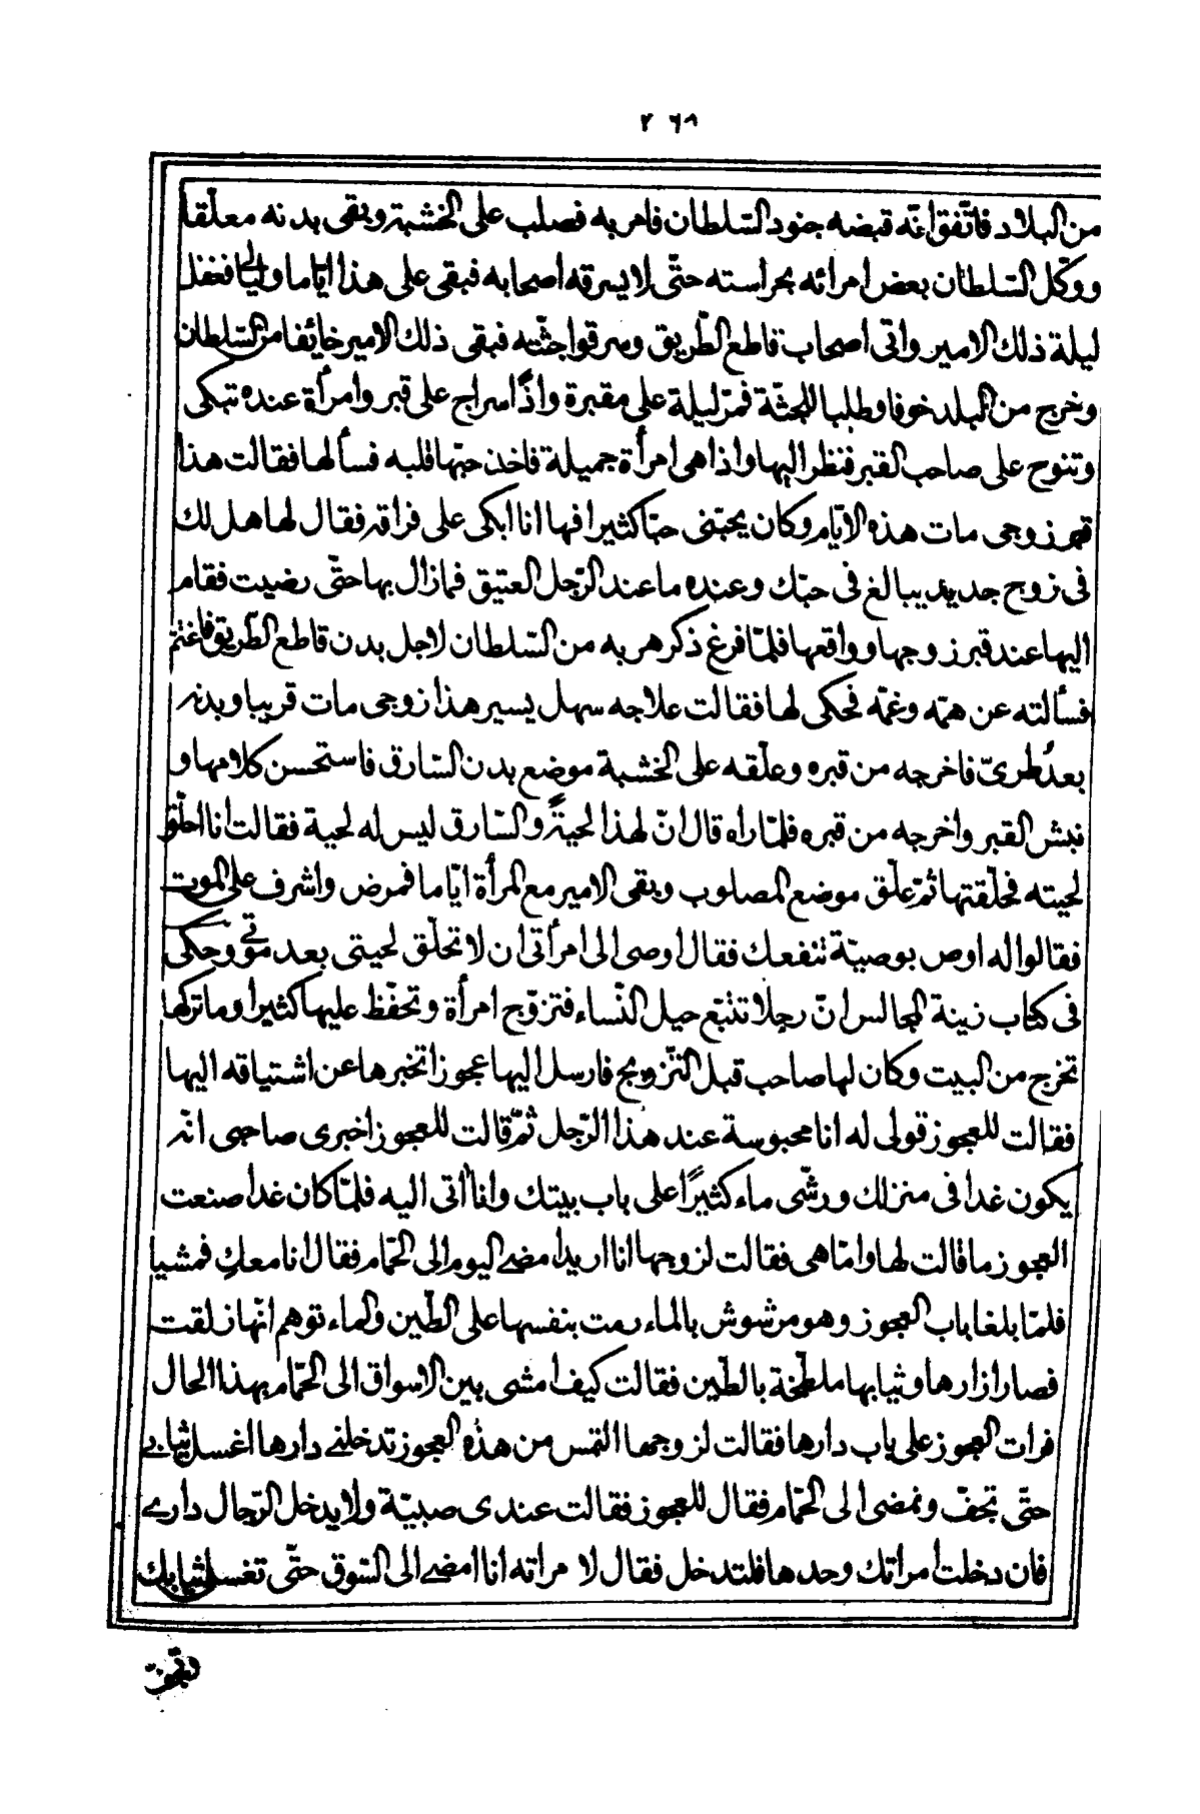 ٢٦٨
من البلاد فاتّفق انّه قبضه جنود السّلطان فامر به فصلب على الخشبة وبقى بدنه معلّقا
ووكّل السّلطان بعض امرائه بحراسته حتّى لا يسرقه اصحابه فبقى على هذا ايّاما وليالى فغفل
ليلة ذلك الامير واتى اصحاب قاطع الطّريق وسرقوا جثّته فبقى ذلك الامير خائفا من السّلطان
وخرج من البلد خوفا وطلبا للجثّة فمرّ ليلة على مقبرة واذا سراج على قبر وامرأة عنده تبكى
وتنوح على صاحب القبر فنظر اليها واذا هى امرأة جميلة فاخذ حبّها قلبه فسألها فقالت هذا
قبر زوجى مات هذه الايّام وكان يحبّنى حبّا كثيرا فها انا ابكى على فراقه فقال لها هل لك
فى زوج جديد يبالغ فى حبّك وعنده ما عند الرّجل العتيق فما زال بها حتّى رضيت فقام
اليها عند قبر زوجها وواقعها فلمّا فرغ ذكر هربه من السّلطان لاجل بدن قاطع الطّريق فاغتم
فسألته عن همّه وغمّه فحكى لها فقالت علاجه سهل يسير هذا زوجى مات قريبا وبدنه
بعدُ طرىّ فاخرجه من قبره وعلّقه على الخشبة موضع بدن السّارق فاستحسن كلامها و
نبش القبر واخرجه من قبره فلمّا راه قال انّ لهذا لحيةً والسّارق ليس له لحية فقالت انا احلّق
لحيته فحلّقتها ثمّ علّق موضع المصلوب وبقى الامير مع المرأة ايّاما فمرض واشرف على الموت
فقالوا له اوص بوصيّة تنفعك فقال اوصى الى امرأتى ان لا تحلّق لحيتى بعد موتى وحكى
فى كتاب زينة المجالس انّ رجلا تتبّع حيل النّساء فتزوّج امرأة وتحفّظ عليها كثيرا وما تركها
تخرج من البيت وكان لها صاحب قبل التّزويج فارسل اليها عجوزا تخبرها عن اشتياقه اليها
فقالت للعجوز قولى له انا محبوسة عند هذا الرّجل ثمّ قالت للعجوز اخبرى صاحبى انّه
يكون غدا فى منزلك ورشّى ماء كثيرًا على باب بيتك وانا اتى اليه فلمّا كان غدا صنعت
العجوز ما قالت لها وامّا هى فقالت لزوجها انا اريد امضى اليوم الى الحمّام فقال انا معكِ فمشيا
فلمّا بلغا باب العجوز وهو مرشوش بالماء رمت بنفسها على الطّين والماء توهم انّها زلقت
فصار ازارها وثيابها ملطّخة بالطّين فقالت كيف امشى بين الاسواق الى الحمّام بهذا الحال
فرات العجوز على باب دارها فقالت لزوجها التمس من هذه العجوز تدخلنى دارها اغسل ثيابى
حتّى تجفّ ونمضى الى الحمّام فقال للعجوز فقالت عندى صبيّة ولا يدخل الرّجال دارى
فان دخلت امراتك وحدها فلتدخل فقال لامراته انا امضى الى السّوق حتّى تغسلى ثيابك
وتجفّ